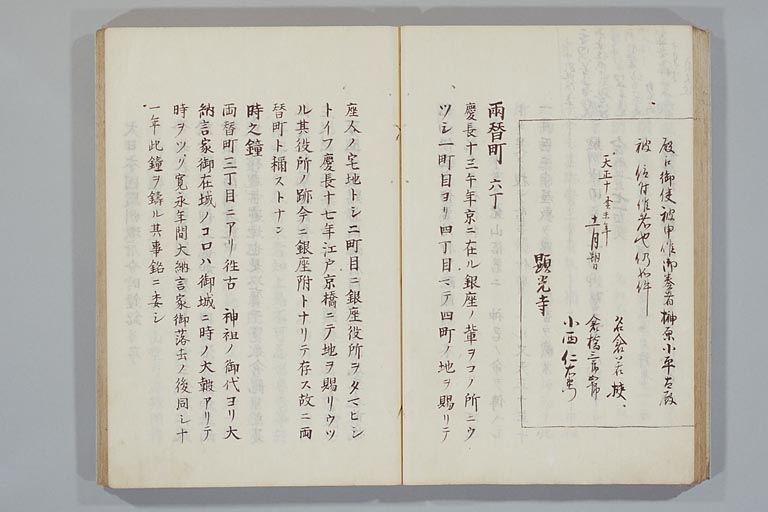 殿ヨリ御使被申作御奏者榊原小平太殿
被仰付作者也仍如件
天正十壬午年
十二月朔日
名倉若狭
倉橋三郎
小西仁右
顕光寺
両替町 六丁
慶長十三年年京ニ在ル銀座ノ輩ヲコノ所ニウ
ツシ一町目ヨリ四丁目マテ四町ノ地ヲ賜リテ
座人ノ宅地トシ二町目ニ銀座役所ヲタマヒシ
トイフ慶長十七年江戸京橋ニテ地ヲ賜リウツ
ル其役所ノ跡今ニ銀座附トナリテ存ス故ニ両
替町ト稱ストナン
時之鐘
両替町三丁目ニアリ往古 神祖ノ御代ヨリ大
納言家御在城ノコロハ御城ニ時ノ大皷アリテ
時ヲツゲ寛永年間大納言家御落去ノ後同シ十
一年此鐘ヲ鑄ル其事銘ニ委シ